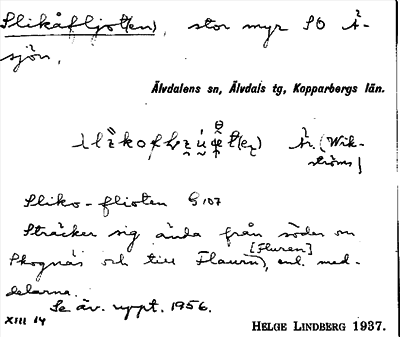 Slikåfljot(en), stor myr SO Å-
sjön,
Älvdalens sn, Älvdals tg, Kopparbergs län.
Är. (Wik-
ströms)
Sliko-flioten G 107
Sträcker sig ända från söder om
Skognäs och till Flaurn, enl. med-
[Fluren]
delarna.
Se äv. uppt. 1956.
XIII 14
HELGE LINDBERG 1937.